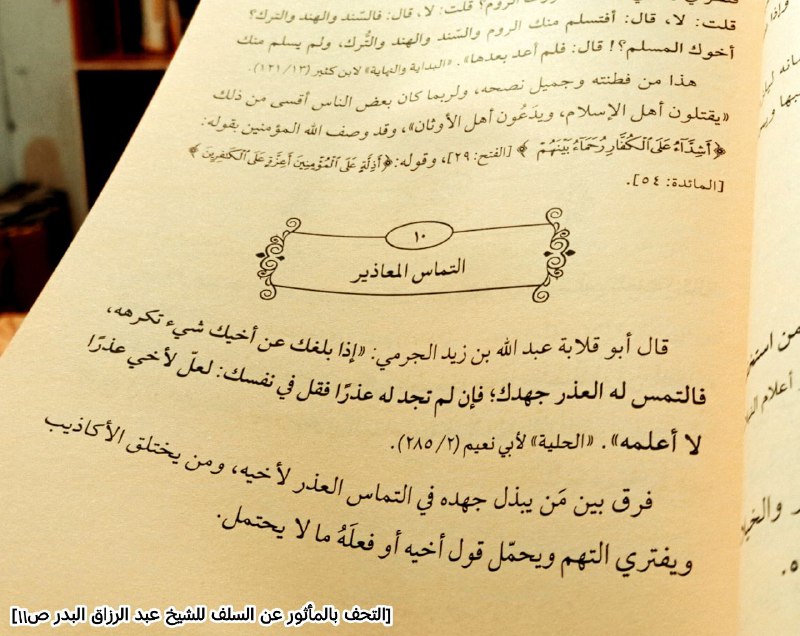 الروم؟ قلت: لا، قال: فالسِّند والهند والترك؟
قلت: لا، قال: أفتسلم منك الروم والسِّند والهند والتُّرك، ولم يسلم منك
أخوك المسلم؟! قال: فلم أعد بعدها». «البداية والنهاية» لابن كثير (١٣/ ١٢١).
هذا من فطنته وجميل نصحه، ولربما كان بعض الناس أقسى من ذلك
«يقتلون أهل الإسلام، ويدَعُون أهل الأوثان»، وقد وصف الله المؤمنين بقوله:
﴿أَشِدَّآءُ عَلَى ٱلْكُفَّارِ رُحَمَآءُ بَيْنَهُمْ﴾ [الفتح: ٢٩]، وقوله: ﴿أَذِلَّةٍ عَلَى ٱلْمُؤْمِنِينَ أَعِزَّةٍ عَلَى ٱلْكَٰفِرِينَ﴾
[المائدة: ٥٤].
١٠
التماس المعاذير
قال أبو قلابة عبد الله بن زيد الجرمي: «إذا بلغك عن أخيك شيء تكرهه،
فالتمس له العذر جهدك؛ فإن لم تجد له عذرًا فقل في نفسك: لعلّ لأخي عذرًا
لا أعلمه». «الحلية» لأبي نعيم (٢/ ٢٨٥).
فرق بين مَن يبذل جهده في التماس العذر لأخيه، ومن يختلق الأكاذيب
ويفتري التهم ويحمّل قول أخيه أو فعلَهُ ما لا يحتمل.
[التحف بالمأثور عن السلف للشيخ عبد الرزاق البدر ص١١]